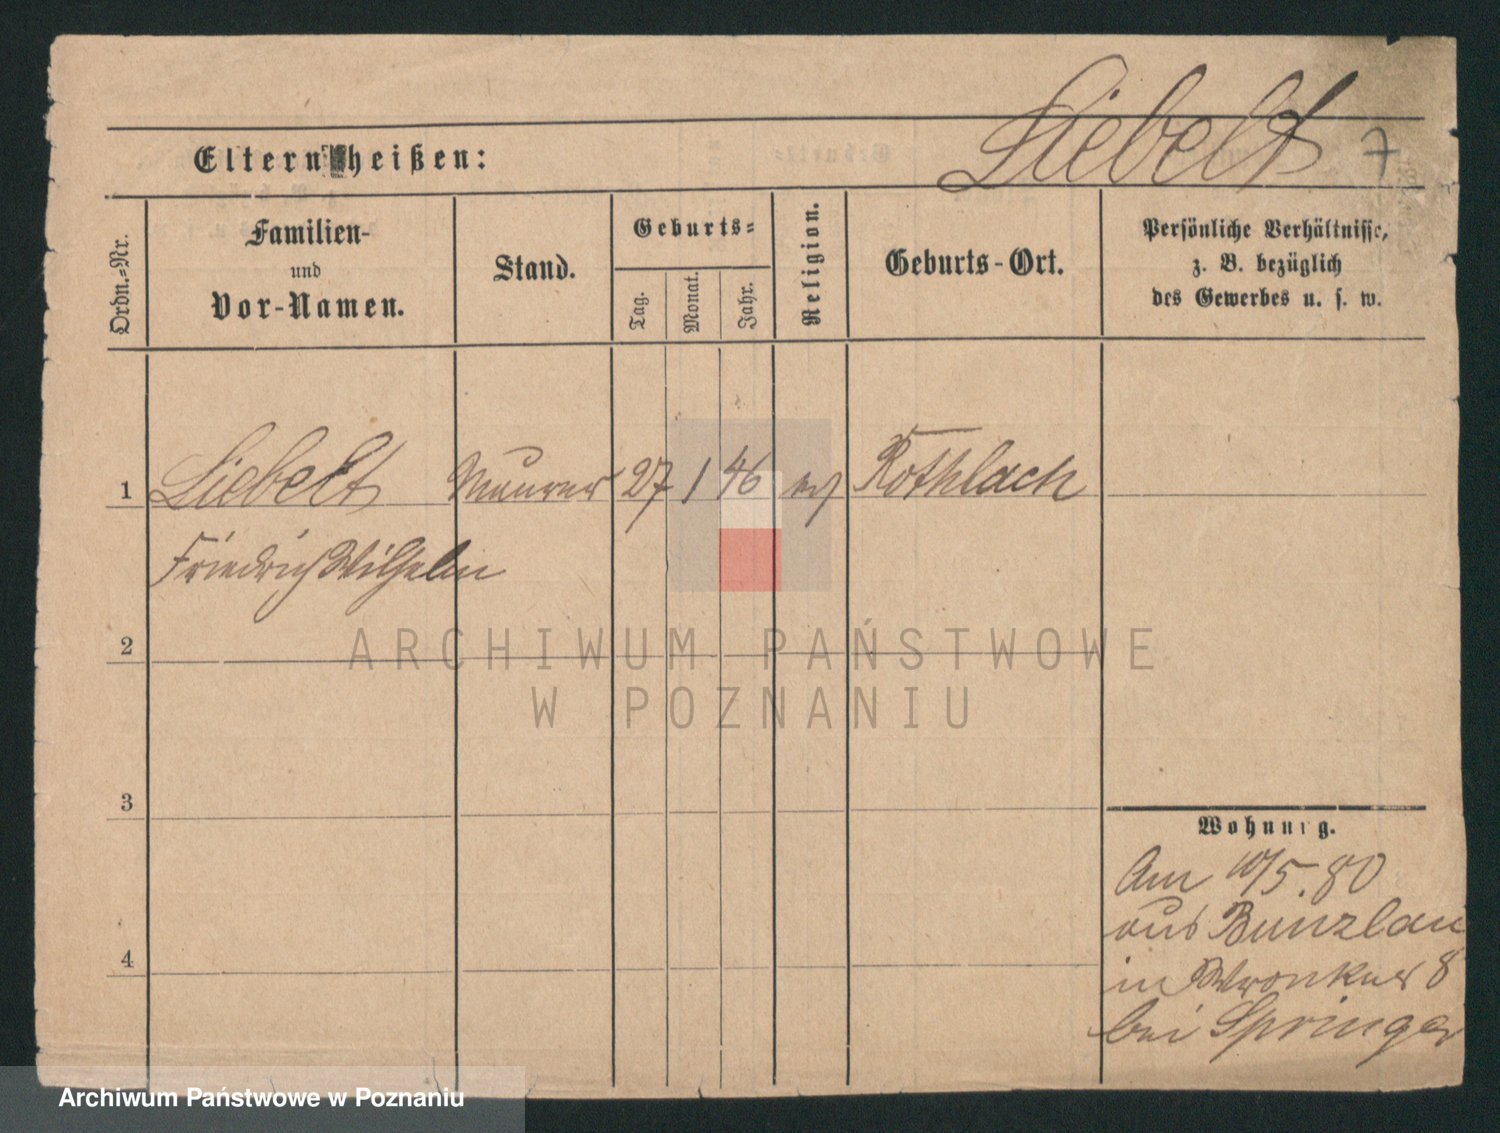 Liebelt 7
Eltern heißen:
Ordn.=Nr.
Familien-
und
Vor-Namen.
Stand.
Geburts=
Tag.
Monat.
Jahr.
Religion.
Geburts-Ort.
Persönliche Verhältnisse,
z. B. bezüglich
des Gewerbes u. s. w.
1 Liebelt Maurer 27 1 46 ev Rothlach
Friedrich Wilhelm
2
ARCHIWUM PAŃSTWOWE
W POZNANIU
3
Wohnung.
Am 10/5.80
aus Bunzlau
in Wronker 8
bei Springer
4
Archiwum Państwowe w Poznaniu